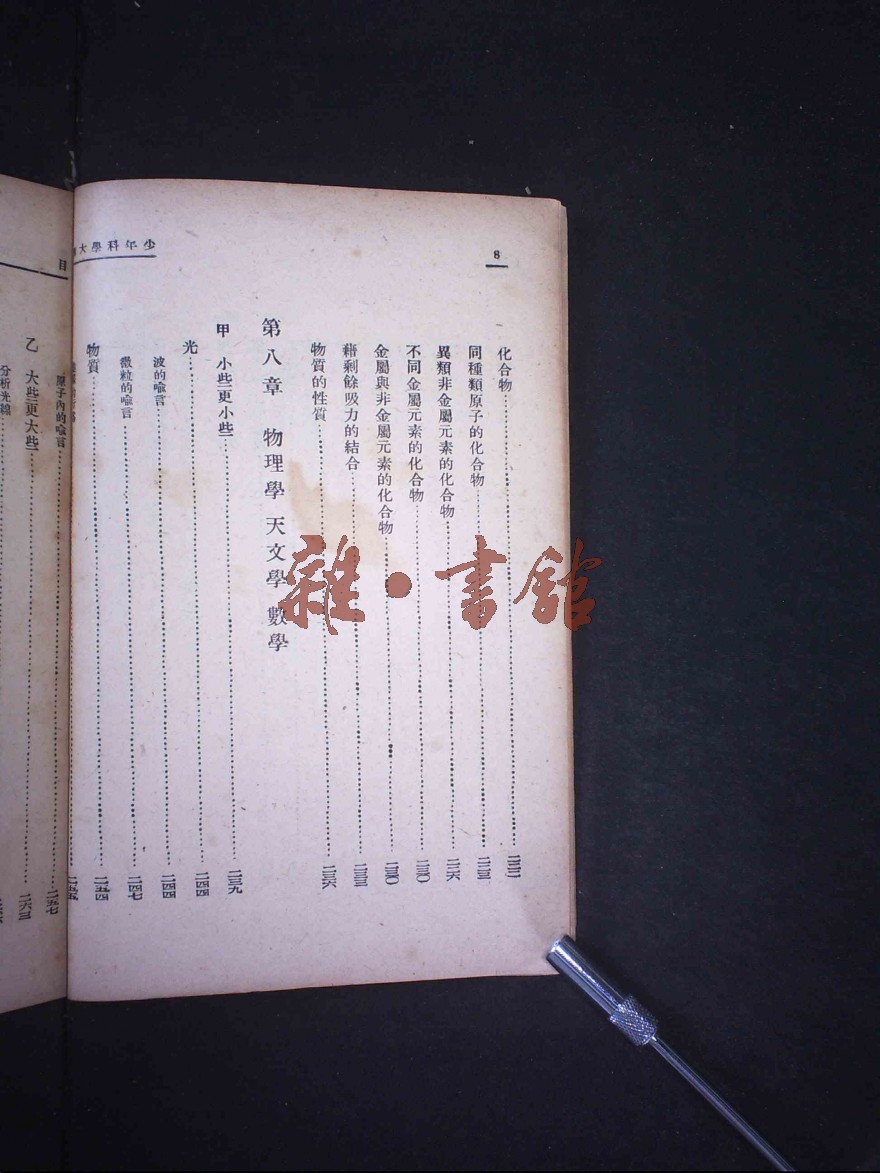 少年科學大
8
化合物……二二二
同種類原子的化合物……二二三
異類非金屬元素的化合物……二二六
不同金屬元素的化合物……二三〇
金屬與非金屬元素的化合物……二三〇
藉剩餘吸力的結合……二三三
物質的性質……二三六
第八章 物理學 天文學 數學
甲 小些三更小些……二三九
光……二四四
波的喩言……二四四
微粒的喩言……二四七
物質……二五四
二五五
目
原子內的喩言……二五七
乙 大些更大些……二六三
分析光線
雜·書館